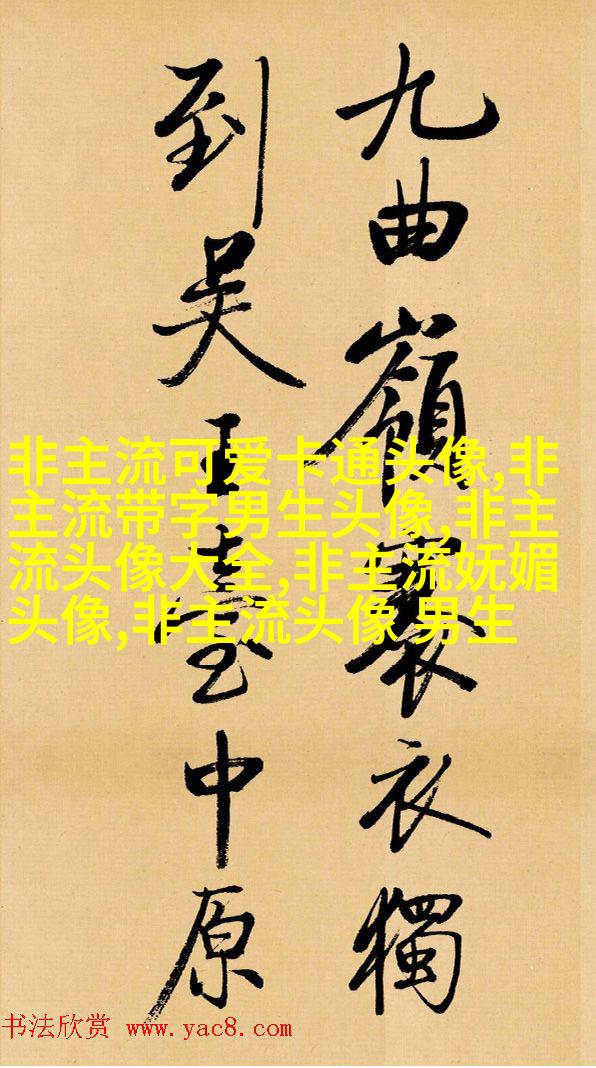 九曲嶺褰衣獨
到吴王臺中原
非主流可爱卡通头像,非
主流带字男生头像,非主
流头像大全,非主流妩媚
头像,非主流头像 男生
书法欣赏 www.yac8.com